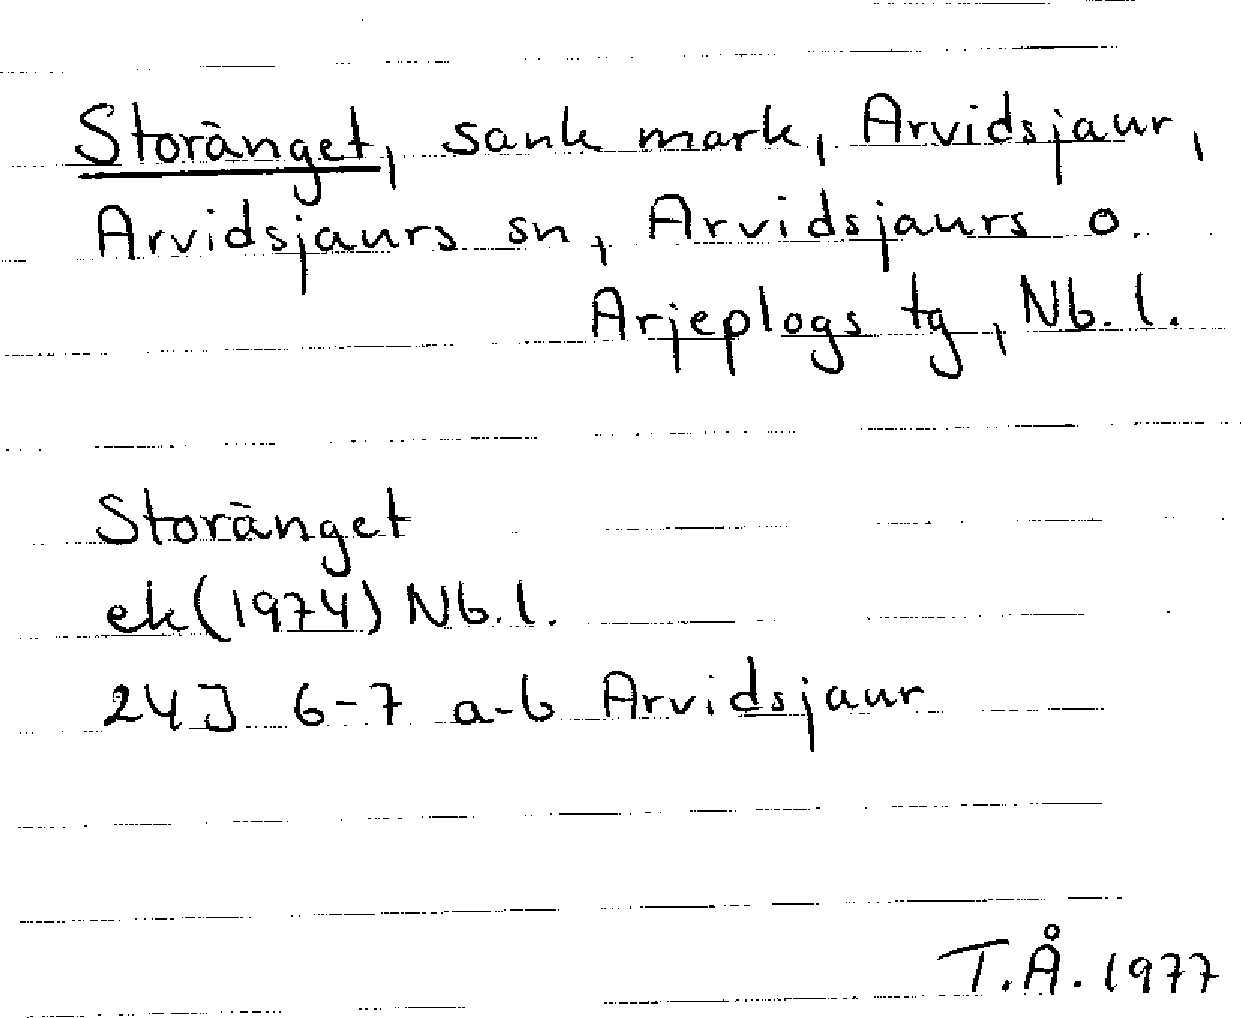 Storänget, sank mark, Arvidsjaur,
Arvidsjaurs sn, Arvidsjaurs o.
Arjeplogs tg, Nb.l.
Storänget
ek (1974) Nb.l.
24J 6-7 a-b Arvidsjaur
T.Å. 1977